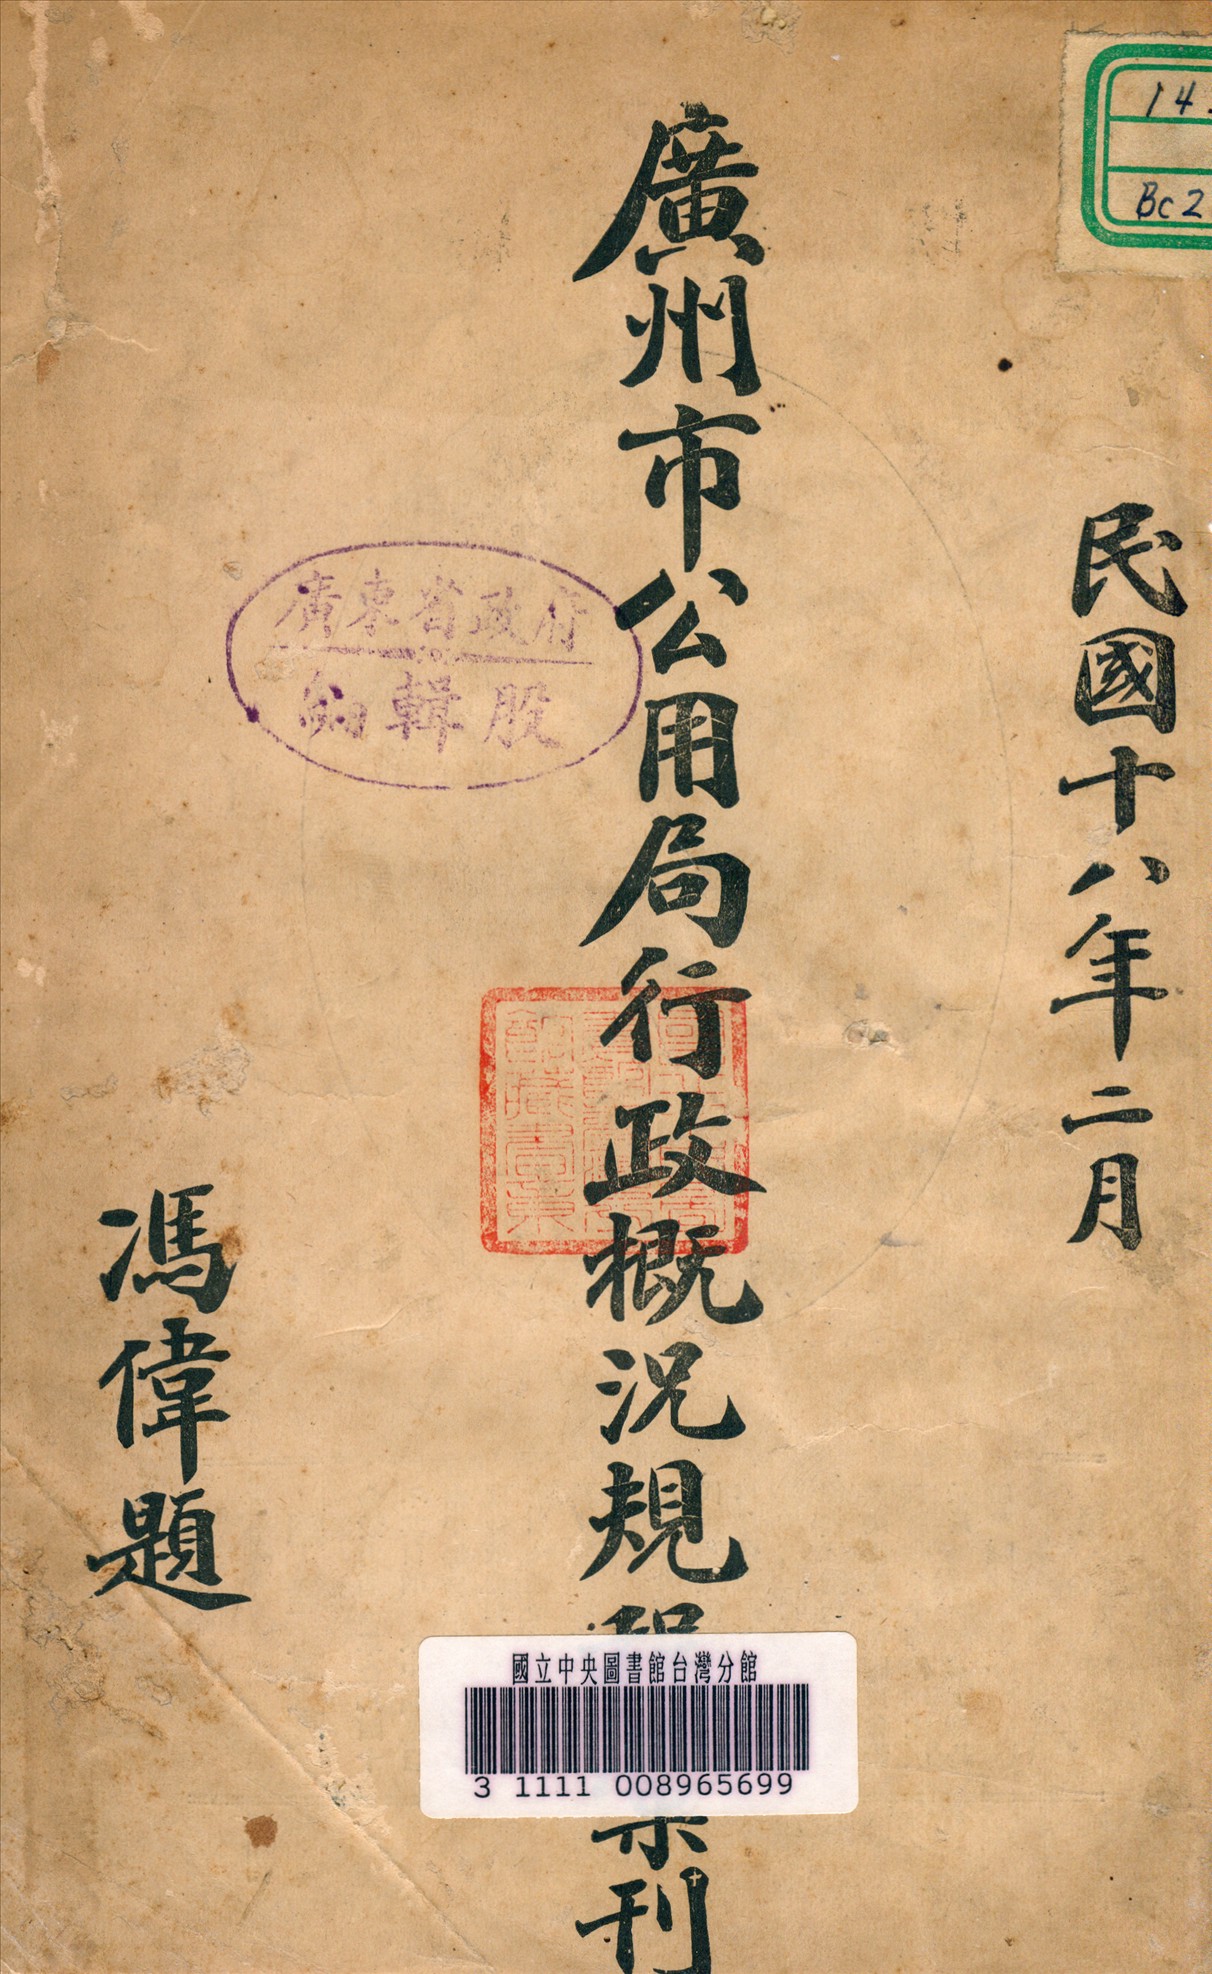 14
Bc2
民國十八年二月
廣州市公用局行政概況規
刊
馮偉題
廣東省政府
編輯股
國立中央圖書館台灣分館
3 1111 008965699